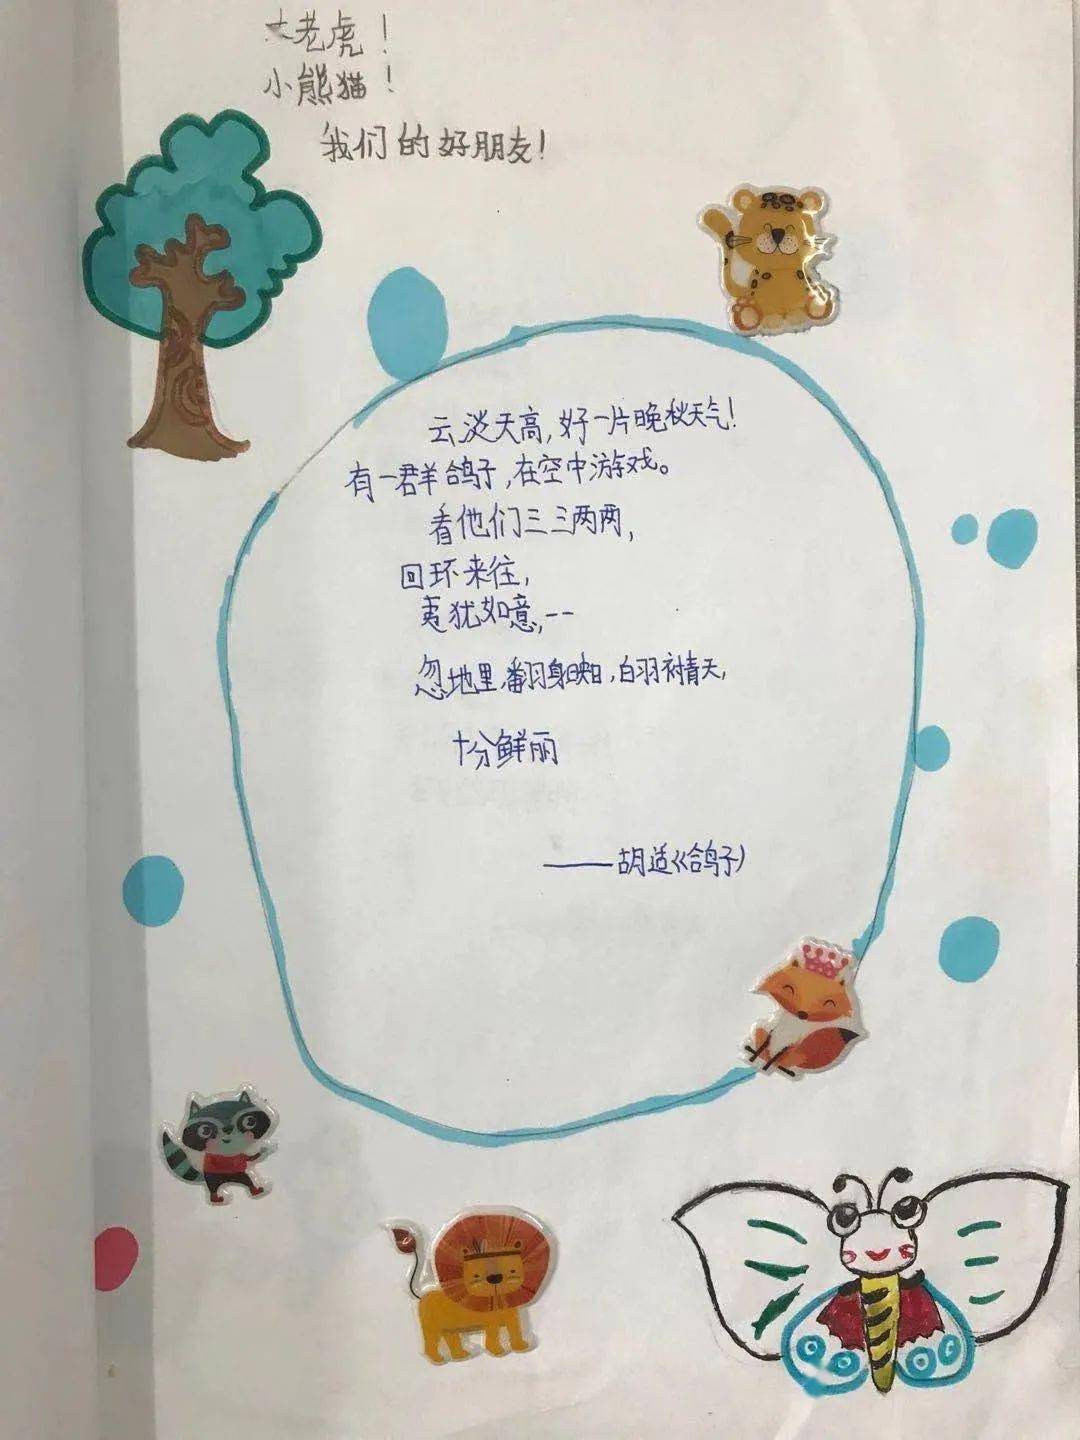 大老虎！
小熊猫！
我们的好朋友！
云淡天高,好一片晚秋天气！
有一群羊鸽子,在空中游戏。
看他们三三两两,
回环来往,
夷犹如意,--
忽地里,翻身映日,白羽衬青天,
十分鲜丽
——胡适《鸽子》